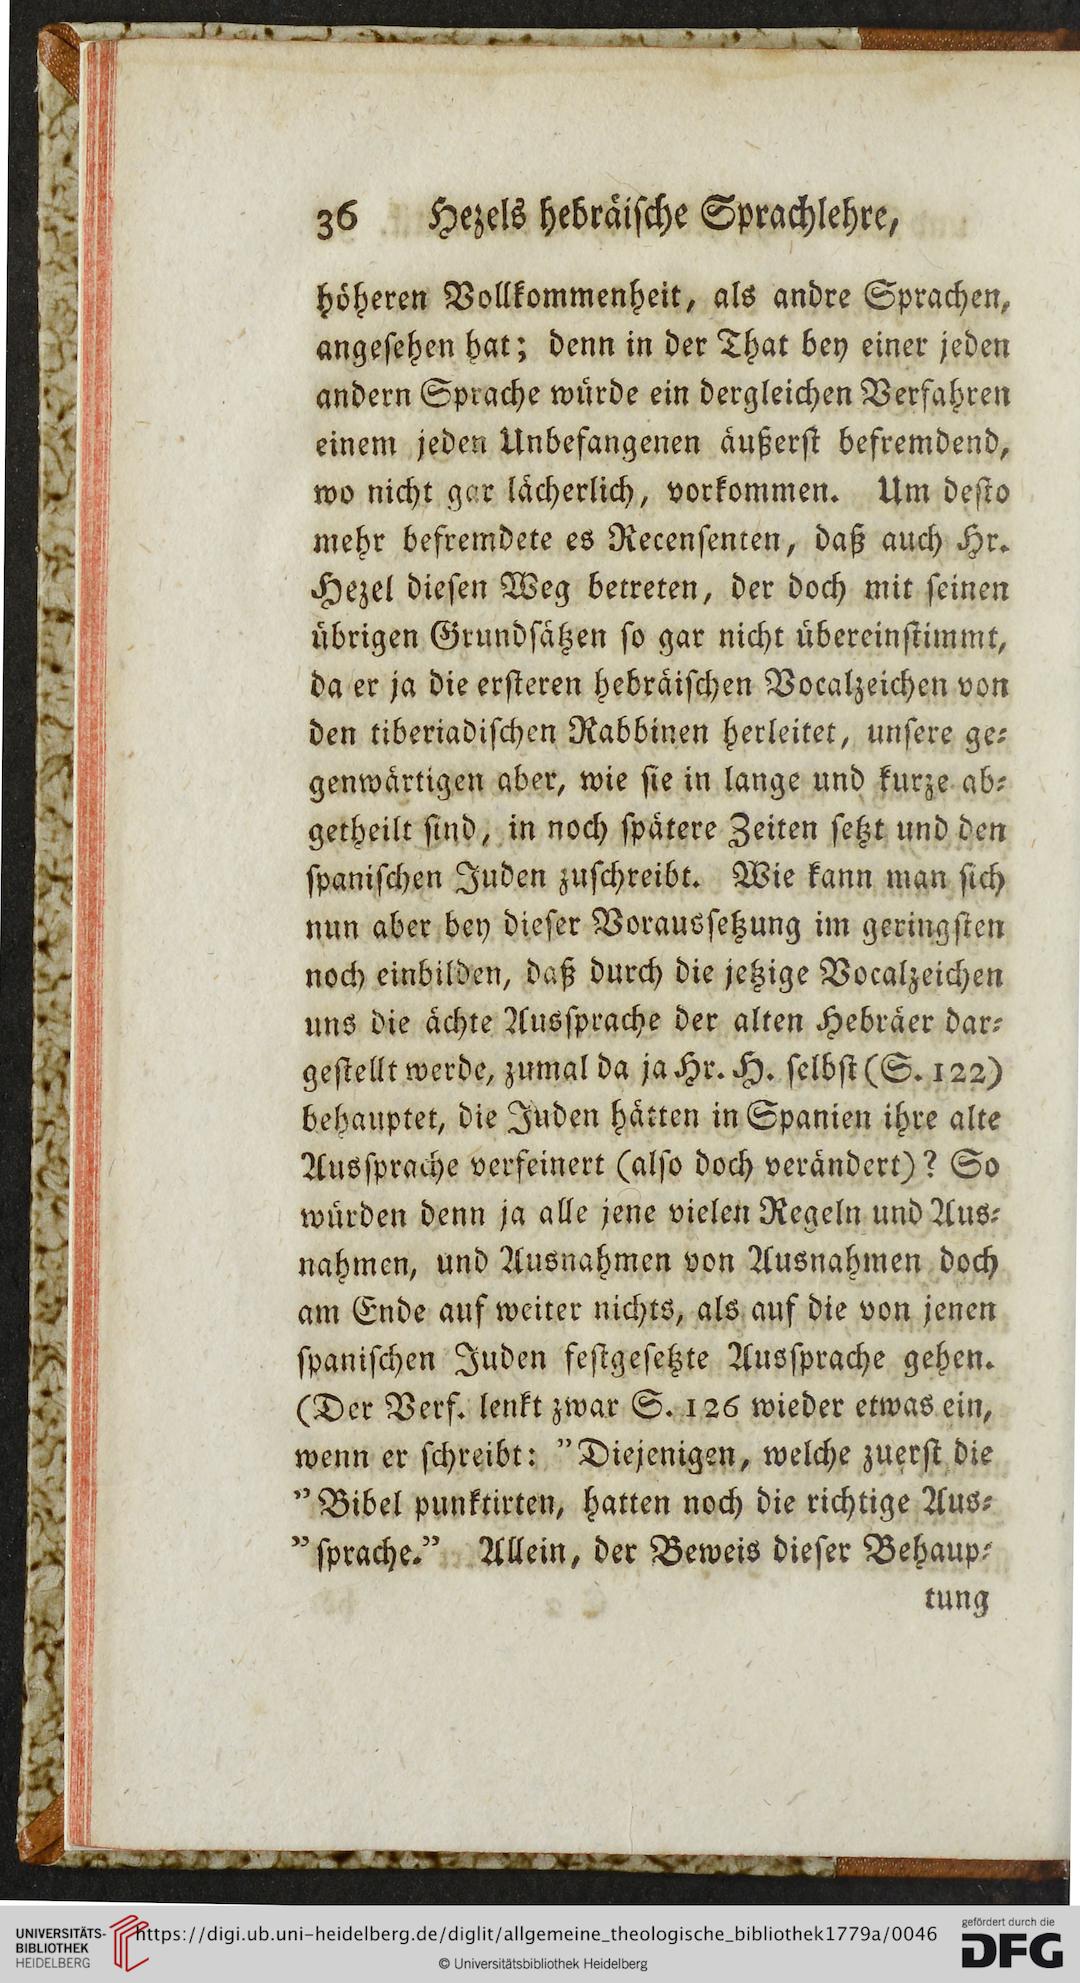 36 Hezels hebräische Sprachlehre,
höheren Vollkommenheit, als andre Sprachen,
angesehen hat; denn in der That bey einer jeden
andern Sprache würde ein dergleichen Verfahren
einem jeden Unbefangenen äußerst befremdend,
wo nicht gar lächerlich, vorkommen. Um desto
mehr befremdete es Recensenten, daß auch Hr.
Hezel diesen Weg betreten, der doch mit seinen
übrigen Grundsätzen so gar nicht übereinstimmt,
da er ja die ersteren hebräischen Vocalzeichen von
den tiberiadischen Rabbinen herleitet, unsere ge-
genwärtigen aber, wie sie in lange und kurze ab-
getheilt sind, in noch spätere Zeiten setzt und den
spanischen Juden zuschreibt. Wie kann man sich
nun aber bey dieser Voraussetzung im geringsten
noch einbilden, daß durch die jetzige Vocalzeichen
uns die ächte Aussprache der alten Hebräer dar-
gestellt werde, zumal da ja Hr. H. selbst (S. 122)
behauptet, die Juden hätten in Spanien ihre alte
Aussprache verfeinert (also doch verändert)? So
würden denn ja alle jene vielen Regeln und Aus-
nahmen, und Ausnahmen von Ausnahmen doch
am Ende auf weiter nichts, als auf die von jenen
spanischen Juden festgesetzte Aussprache gehen.
(Der Verf. lenkt zwar S. 126 wieder etwas ein,
wenn er schreibt: "Diejenigen, welche zuerst die
"Bibel punktirten, hatten noch die richtige Aus-
"sprache." Allein, der Beweis dieser Behaup-
tung
UNIVERSITÄTS-
BIBLIOTHEK
HEIDELBERG
https://digi.ub.uni-heidelberg.de/diglit/allgemeine_theologische_bibliothek1779a/0046
© Universitätsbibliothek Heidelberg
gefördert durch die
DFG